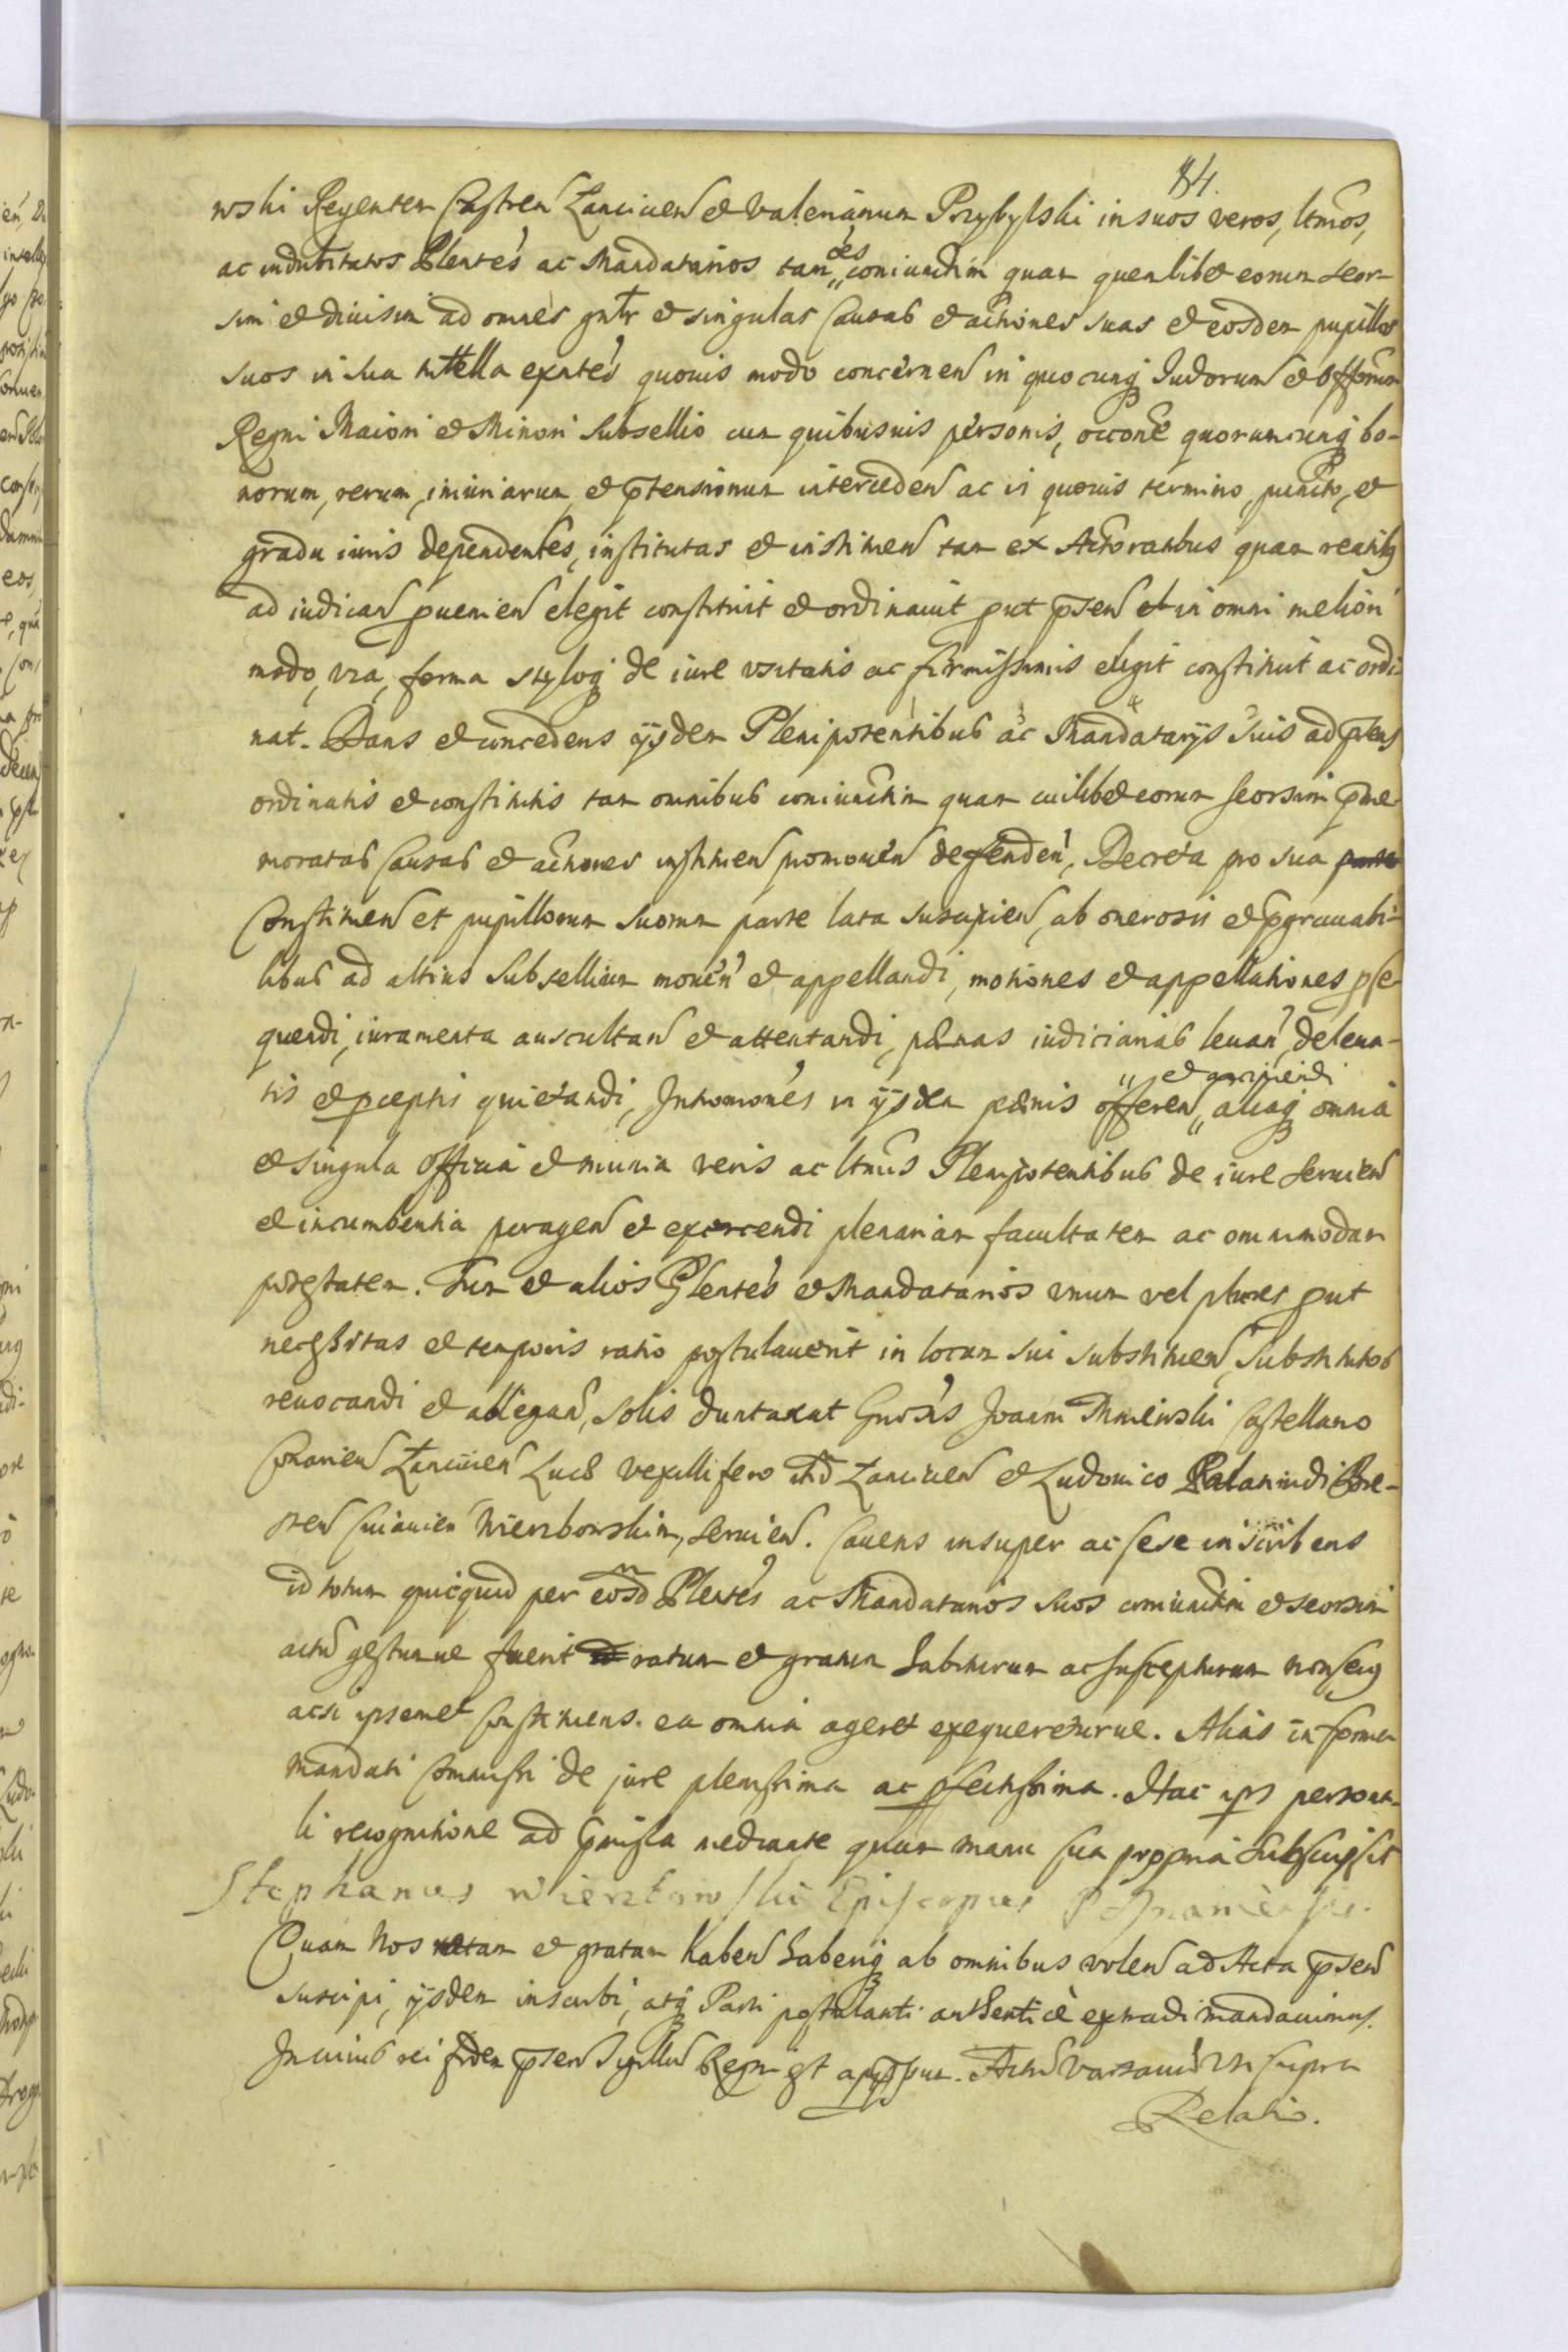 84.
wski Regentem Castren Lancicien et Valerianum Przybylski in suos veros, ltmos,
ac indubitatos Plentes ac Mandatarios tam oes coniunctim quam quemlibet eorum seor-
sim et divisim ad omnes gnlr et singulas Causas et actiones suas et eosdem pupillos
suos in sua tuttella exntes quovis modo concernen in quocunq Iudiorum et Offorum
Regni Maiori et Minori Subsellio cum quibusvis personis, occone quorumcunq bo-
norum, rerum, iniuriarum, et ptensionum interceden ac in quovis termino, puncto, et
gradu iuris dependentes, institutas et instituen tam ex Actoratibus quam reatibq
ad iudican puenien elegit constituit et ordinavit put psen et in omni meliori
modo, via, forma styloq de iure usitatis ac firmissimis elegit constituit ac ordi-
nat. Dans et concedens ijsdem Plenipotentibus ac Mandatarijs suis ad psens
ordinatis et constitutis tam omnibus coniunctim quam cuilibet eorum seorsim pme-
moratas Causas et actiones instituen promoven defenden, Decreta pro sua parte
Constituen et pupillorum suorum parte lata suscipien, ab onerosis et pgravabi-
libus ad altius Subsellium moven et appellandi, motiones et appellationes pse-
quendi, iuramenta auscultan et attentandi, poenas iudiciarias levan, deleva-
tis et pceptis quietandi, Intromiones in ijsdem poenis offeren et parcipiendi aliaq omnia
et singula officia et munia veris ac ltmis Plenipotentibus de iure servien
et incumbentia peragen et exercendi plenariam facultatem ac omnimodam
potestatem. Tum et alios Plentes et Mandatarios unum vel plures put
necessitas et temporis ratio postulaverit in locum sui substituen, Substitutos
revocandi et ablegan, solis duntaxat Gnosis Joanni Castellano
Lancicien Vexillifero Lancicien et Ludovico Palatinidi Bre-
sten Cuiavien Wierzbowskim, servien. Cavens insuper ac sese inscribens
id totum quicquid per eosd Plentes ac Mandatarios suos coniunctim et seorsim
actu gestumve fuerit ratum et gratum habiturum ac suscepturum non secq
acsi ipsemet Constituens. ea omnia ageret exequereturve. Alias in forma
mandati Commissi de jure plenissima ac pfectissima. Hac ips persona-
li recognitione ad pmissa mediante quam manu sua propria subscripsit
Stephanus Wierzbowski Episcopus Posnaniensis.
Quam Nos ratam et gratam haben haberiq ab omnibus volen ad Acta psen
suscipi, ijsdem inscribi, atq Parti postulanti authentice extradi mandavimus.
In cuius rei fidem psen Sigillu Regni est appssum. Actu Varsaviae Ut supra
Relatio.